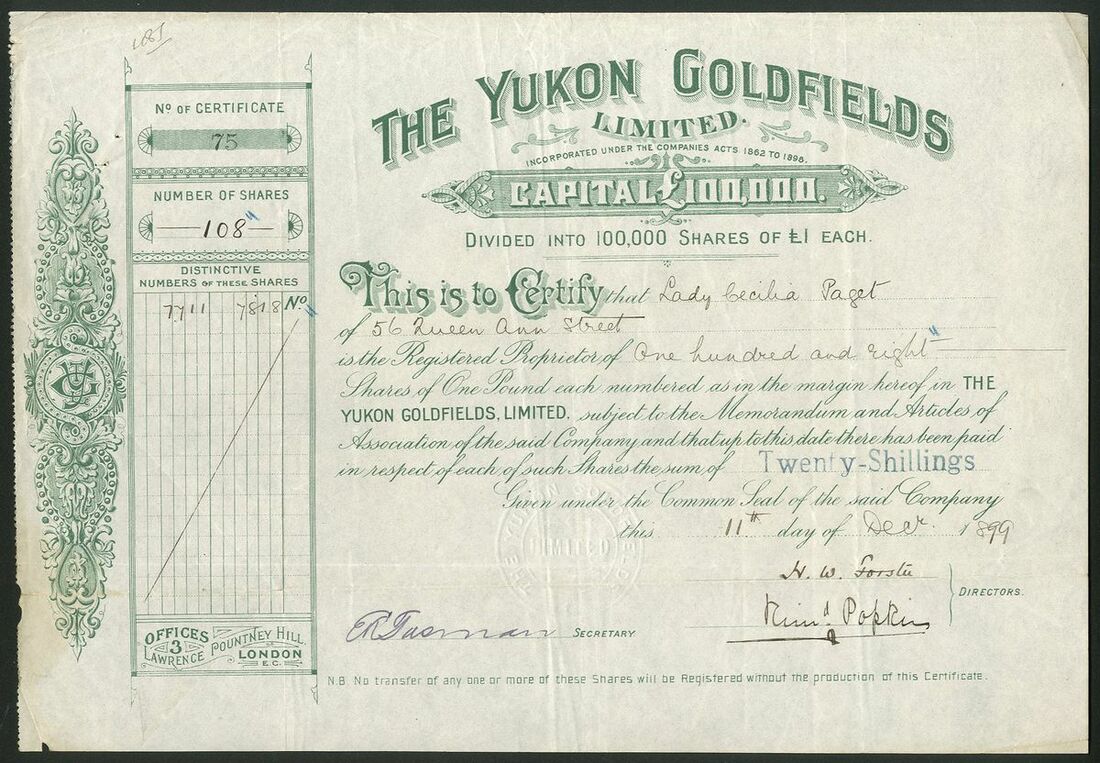 1081
Nº OF CERTIFICATE
75
NUMBER OF SHARES
108
DISTINCTIVE
NUMBERS OF THESE SHARES
7711 7818 Nº
OFFICES
3
LAWRENCE POUNTNEY HILL
LONDON
E.C.
THE YUKON GOLDFIELDS
LIMITED.
INCORPORATED UNDER THE COMPANIES ACTS. 1862 TO 1898.
CAPITAL £100,000.
DIVIDED INTO 100,000 SHARES OF £1 EACH.
This is to Certify that Lady Cecilia Paget
of 56 Queen Ann Street
is the Registered Proprietor of One hundred and eight
Shares of One Pound each numbered as in the margin hereof in THE
YUKON GOLDFIELDS, LIMITED, subject to the Memorandum and Articles of
Association of the said Company and that up to this date there has been paid
in respect of each of such Shares the sum of Twenty-Shillings
Given under the Common Seal of the said Company
this 11th day of Decr. 1899
H. W. Forster
DIRECTORS.
Popkin
SECRETARY
LIMITED
N.B. No transfer of any one or more of these Shares will be Registered without the production of this Certificate.